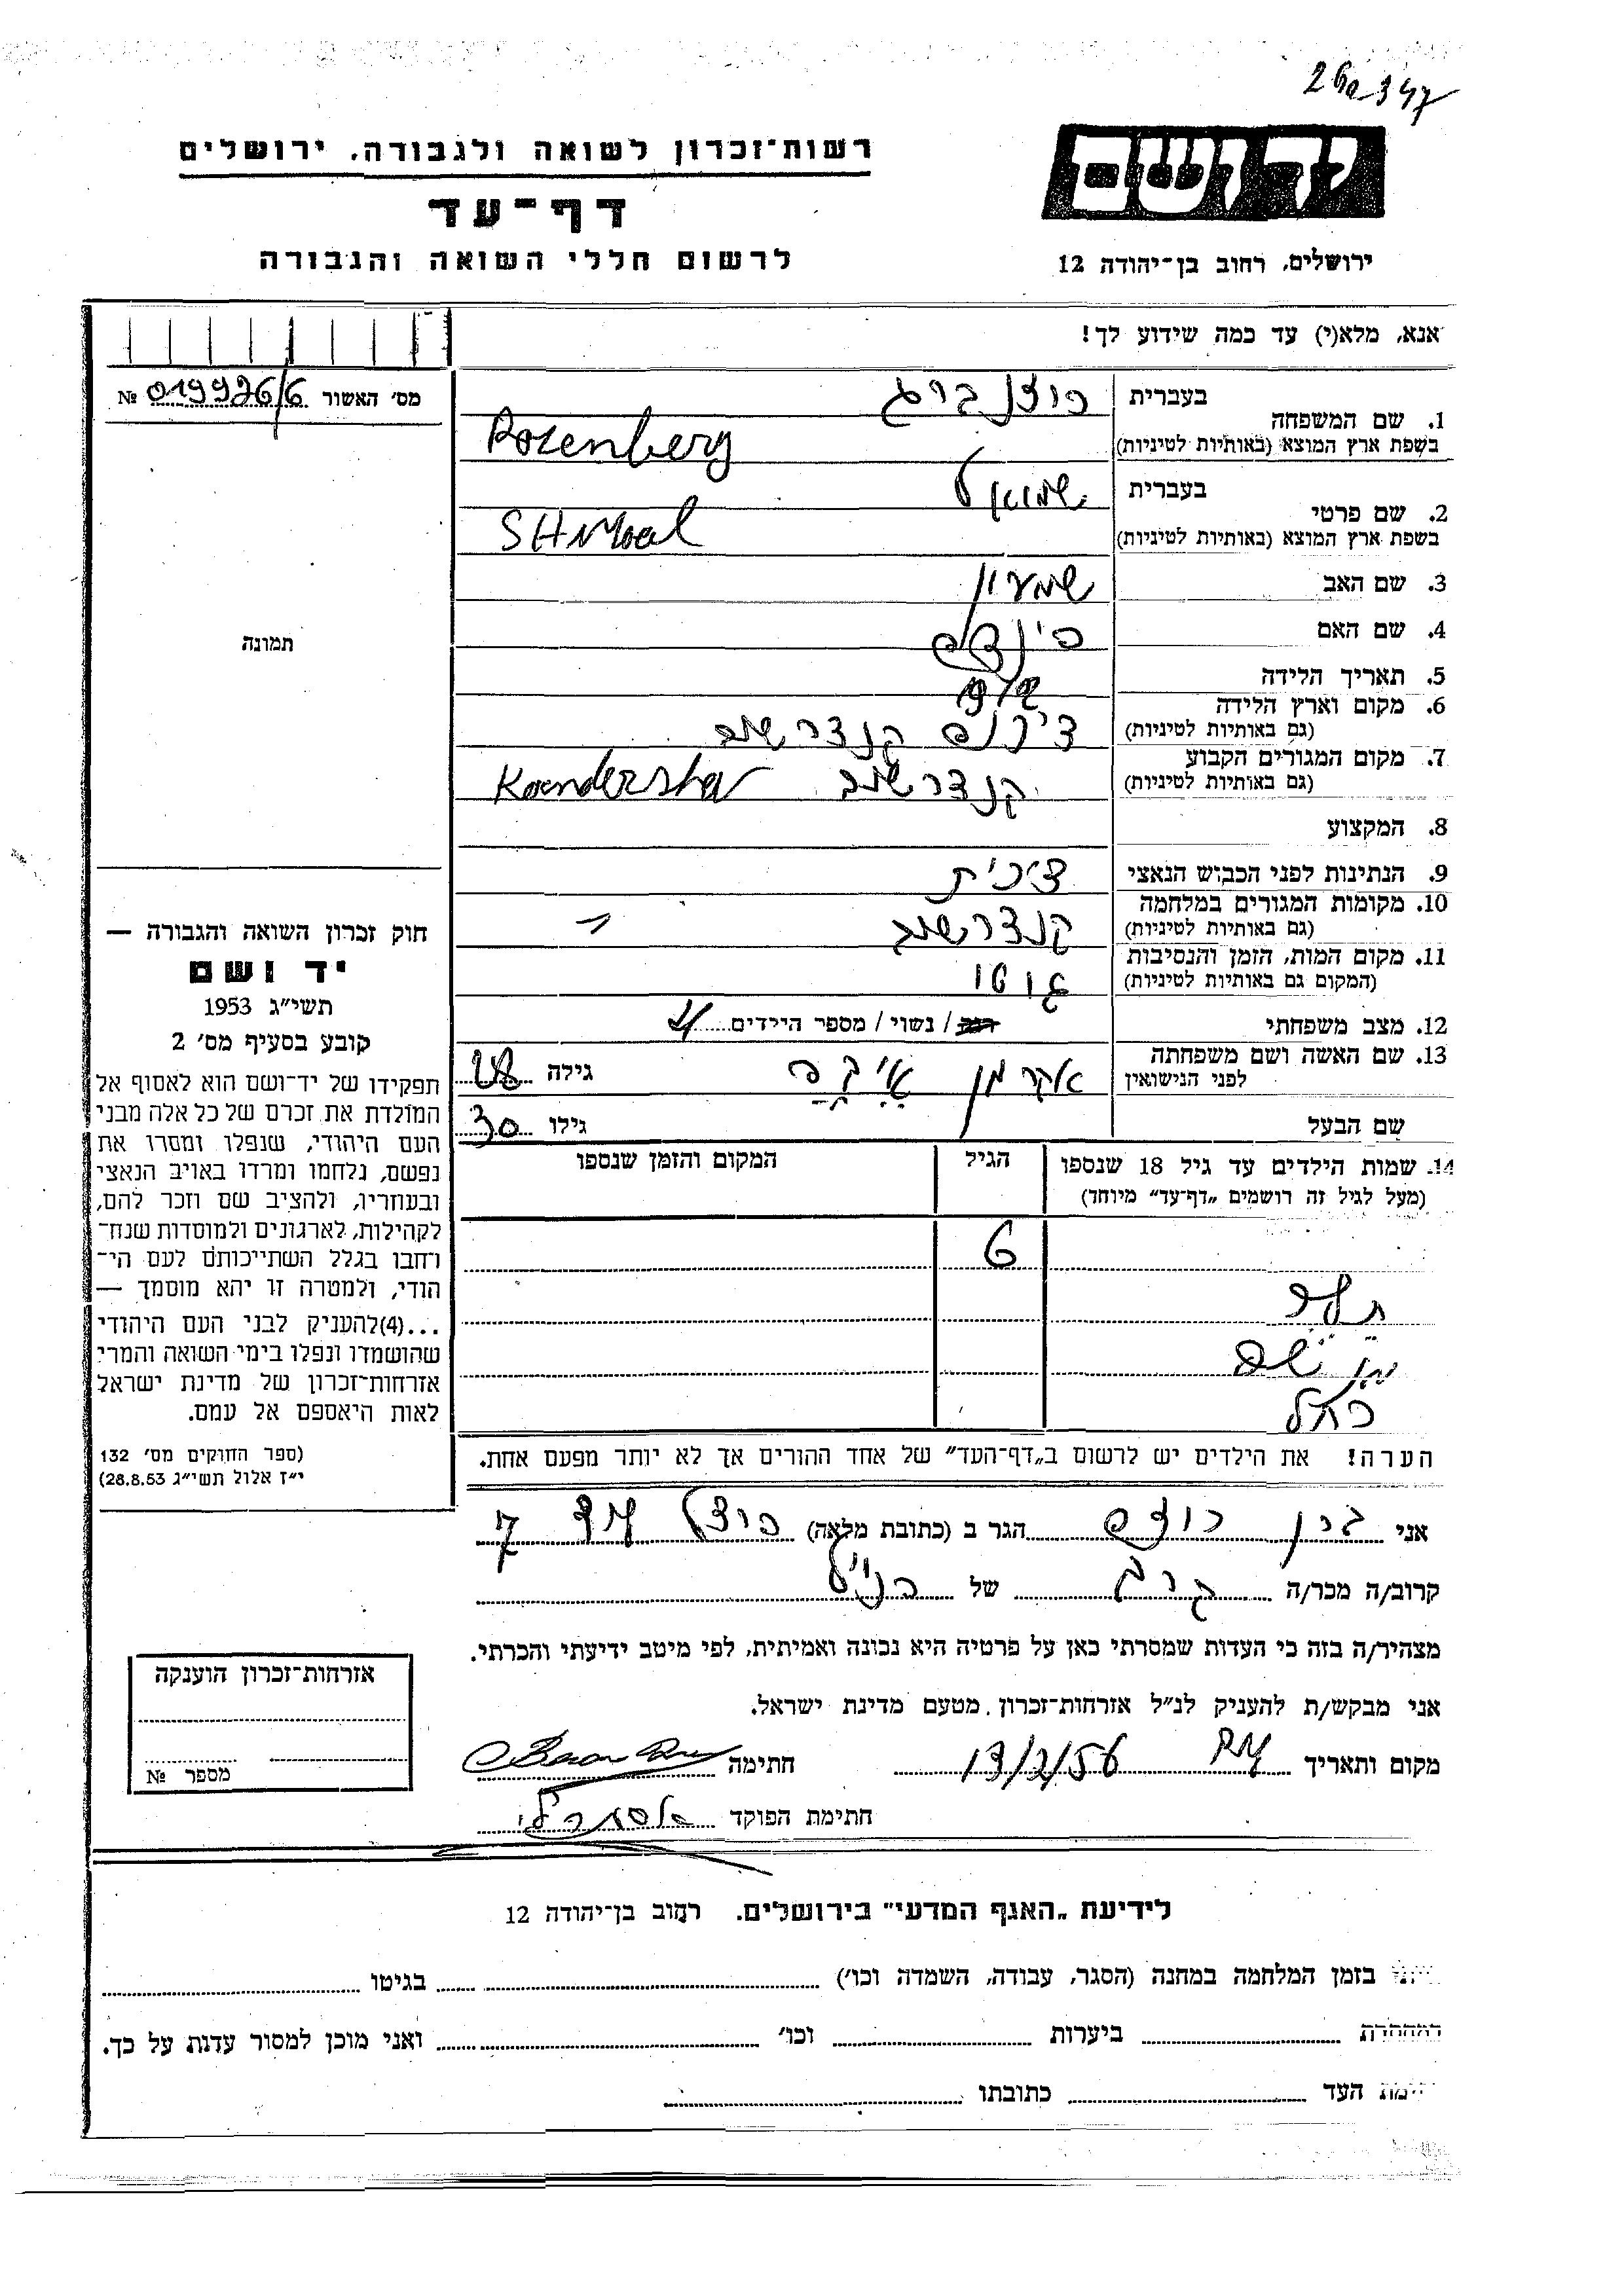 26a 347
רשות־זכרון לשואה ולגבורה, ירושלים
דף־עד
לרשום חללי השואה והגבורה
ידושם
ירושלים, רחוב בן־יהודה 12
אנא, מלא(י) עד כמה שידוע לך!
מס׳ האשור 019926/6 №
1. שם המשפחה: בעברית רוזנברג
בשפת ארץ המוצא (באותיות לטיניות) Rozenberg
2. שם פרטי בעברית שמואל
בשפת ארץ המוצא (באותיות לטיניות) SHMoel
3. שם האב שמעון
4. שם האם הינדה
5. תאריך הלידה
6. מקום וארץ הלידה
(גם באותיות לטיניות)
7. מקום המגורים הקבוע קנדרשוב Koandershov
(גם באותיות לטיניות)
8. המקצוע
9. הנתינות לפני הכבוש הנאצי
10. מקומות המגורים במלחמה קנדרשוב
(גם באותיות לטיניות)
11. מקום המות, הזמן והנסיבות גיטו
(המקום גם באותיות לטיניות)
12. מצב משפחתי רוק / נשוי / מספר הילדים
13. שם האשה ושם משפחתה אקרמן גילה 28
לפני הנישואין
שם הבעל גילו 30
14. שמות הילדים עד גיל 18 שנספו הגיל המקום והזמן שנספו
(מעל לגיל זה רושמים „דף־עד” מיוחד)
6
רחל
הערה! את הילדים יש לרשום ב„דף־העד” של אחד ההורים אך לא יותר מפעם אחת.
תמונה
חוק זכרון השואה והגבורה —
יד ושם
תשי״ג 1953
קובע בסעיף מס׳ 2
תפקידו של יד־ושם הוא לאסוף אל
המולדת את זכרם של כל אלה מבני
העם היהודי, שנפלו ומסרו את
נפשם, נלחמו ומרדו באויב הנאצי
ובעוזריו, ולהציב שם וזכר להם,
לקהילות, לארגונים ולמוסדות שנח־
רחבו בגלל השתייכותם לעם הי־
הודי, ולמטרה זו יהא מוסמך —
...(4)להעניק לבני העם היהודי
שהושמדו ונפלו בימי השואה והמרי
אזרחות־זכרון של מדינת ישראל
לאות היאספם אל עמם.
(ספר החוקים מס׳ 132
י״ז אלול תשי״ג 28.8.53)
אני הגר ב (כתובת מלאה) 7
קרוב/ה מכר/ה קרוב של הנ״ל
מצהיר/ה בזה כי העדות שמסרתי כאן על פרטיה היא נכונה ואמיתית, לפי מיטב ידיעתי והכרתי.
אני מבקש/ת להעניק לנ״ל אזרחות־זכרון מטעם מדינת ישראל.
מקום ותאריך 13/2/56 חתימה
חתימת הפוקד
אזרחות־זכרון הוענקה
מספר №
לידיעת „האגף המדעי” בירושלים. רחוב בן־יהודה 12
בזמן המלחמה במחנה (הסגר, עבודה, השמדה וכו׳) בגיטו
במחתרת ביערות וכו׳ ואני מוכן למסור עדות על כך.
חתימת העד כתובתו